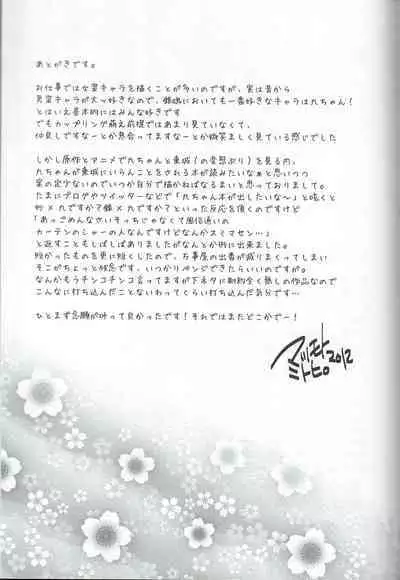 あとがきです。
お仕事では女装キャラを描くことが多いのですが、実は昔から
男装キャラが大ッ好きなので、銀魂においても一番好きなキャラは九ちゃん!
とはいえ基本的にはみんな好きです
でもカップリング萌え前提ではあまり見ていなくて、
仲良しですなーとか息合ってますなーとか微笑ましく見ている感じでした
しかし原作とアニメで九ちゃんと東城(の変態ぶり)を見る内、
九ちゃんが東城にいらんことをされる本が読みたいなぁと思いつつ
気の定少ないのでいつか自分で描かねばなるまいと思っておりまして。
たまにブログやツイッターなどで「九ちゃん本が出したいな〜」と呟くと
妙×九ですか?銀×九ですか?といった反応を頂くのですけど
「あっごめんなさいそっちじゃなくて風俗通いの
カーテンのしゃーの人なんですけどなんかスミマセン…」
と返すこともしばしばありましたがなんとか形に出来ました。
短かったものを更に短くしたので、万事屋の出番が減りまくってしまい
そこがちょっと残念です、いつかリベンジできたらいいのですが。
なんかもうチンコチンコ言ってますが下ネタに制約全く無しの作品なので
こんなに打ち込んだことないわってくらい打ち込んだ気分です…
ひとまず念願が叶って良かったです!それではまたどこかでー!
2012